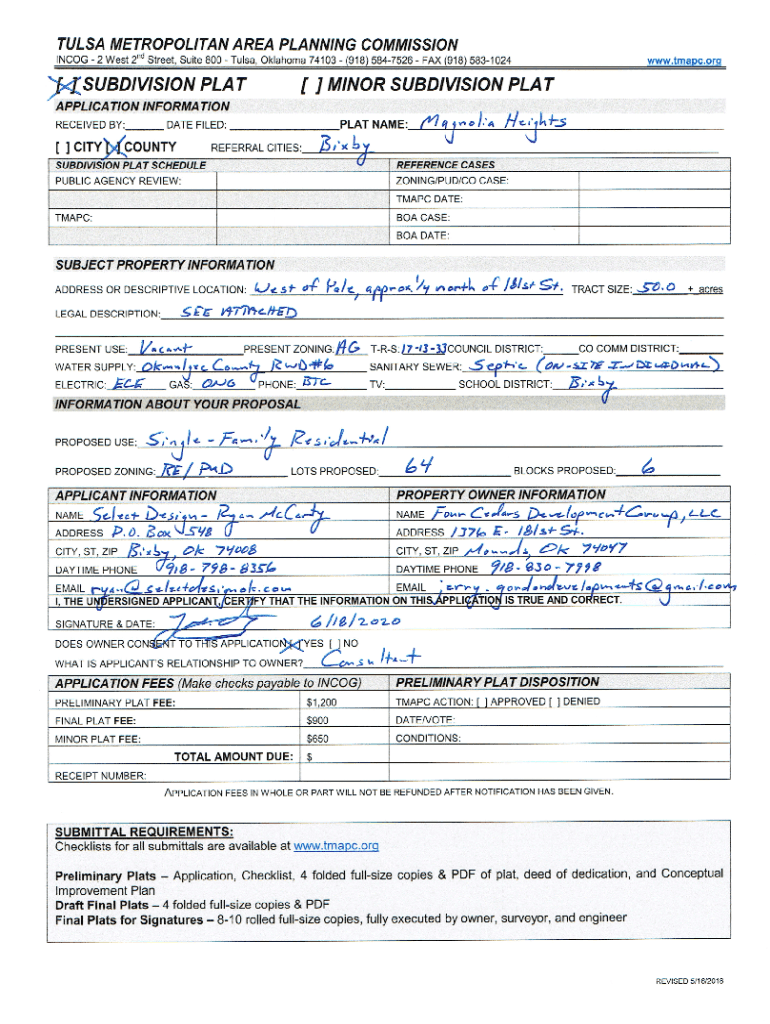 TULSA METROPOLITAN AREA PLANNING COMMISSION
INCOG - 2 West 2nd Street, Suite 800 - Tulsa, Oklahoma 74103 - (918) 584-7526 - FAX (918) 583-1024 www.tmapc.org
[X] SUBDIVISION PLAT [ ] MINOR SUBDIVISION PLAT
APPLICATION INFORMATION
RECEIVED BY: DATE FILED: PLAT NAME: Magnolia Heights
[ ] CITY [X] COUNTY REFERRAL CITIES: Bixby
SUBDIVISION PLAT SCHEDULE REFERENCE CASES
PUBLIC AGENCY REVIEW: ZONING/PUD/CO CASE:
TMAPC DATE:
TMAPC: BOA CASE:
BOA DATE:
SUBJECT PROPERTY INFORMATION
ADDRESS OR DESCRIPTIVE LOCATION: West of Yale, approx'ly north of 181st St. TRACT SIZE: 50.0 ± acres
LEGAL DESCRIPTION: SEE ATTACHED
PRESENT USE: Vacant PRESENT ZONING: AG T-R-S: 17-13-33 COUNCIL DISTRICT: CO COMM DISTRICT:
WATER SUPPLY: Okmulgee County RWD#6 SANITARY SEWER: Septic (ON-SITE INDIVIDUAL)
ELECTRIC: ECE GAS: ONG PHONE: BTC TV: SCHOOL DISTRICT: Bixby
INFORMATION ABOUT YOUR PROPOSAL
PROPOSED USE: Single-Family Residential
PROPOSED ZONING: RE/PUD LOTS PROPOSED: 64 BLOCKS PROPOSED: 6
APPLICANT INFORMATION PROPERTY OWNER INFORMATION
NAME Select Design - Ryan McCarty NAME Four Cedars Development Group, LLC
ADDRESS P.O. Box 548 ADDRESS 1376 E. 181st St.
CITY, ST, ZIP Bixby, OK 74008 CITY, ST, ZIP Mounds, OK 74047
DAYTIME PHONE 918-798-8356 DAYTIME PHONE 918-830-7998
EMAIL ryan@selectdesignok.com EMAIL jerry.gordondevelopments@gmail.com
I, THE UNDERSIGNED APPLICANT, CERTIFY THAT THE INFORMATION ON THIS APPLICATION IS TRUE AND CORRECT.
SIGNATURE & DATE: 6/18/2020
DOES OWNER CONSENT TO THIS APPLICATION [X] YES [ ] NO
WHAT IS APPLICANT'S RELATIONSHIP TO OWNER? Consultant
APPLICATION FEES (Make checks payable to INCOG) PRELIMINARY PLAT DISPOSITION
PRELIMINARY PLAT FEE: $1,200 TMAPC ACTION: [ ] APPROVED [ ] DENIED
FINAL PLAT FEE: $900 DATE/VOTE:
MINOR PLAT FEE: $650 CONDITIONS:
TOTAL AMOUNT DUE: $
RECEIPT NUMBER:
APPLICATION FEES IN WHOLE OR PART WILL NOT BE REFUNDED AFTER NOTIFICATION HAS BEEN GIVEN.
SUBMITTAL REQUIREMENTS:
Checklists for all submittals are available at www.tmapc.org
Preliminary Plats – Application, Checklist, 4 folded full-size copies & PDF of plat, deed of dedication, and Conceptual
Improvement Plan
Draft Final Plats – 4 folded full-size copies & PDF
Final Plats for Signatures – 8-10 rolled full-size copies, fully executed by owner, surveyor, and engineer
REVISED 5/16/2018